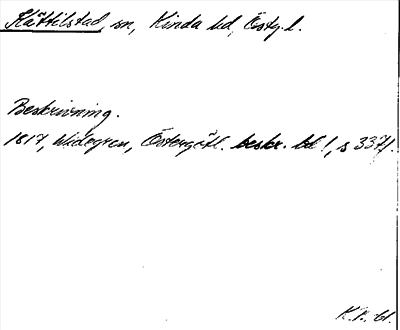 Kättilstad, sn, Kinda hd, Östg. l.
Beskrivning.
1817, Widegren, Östergötl. beskr. bd 1, s 337f.
K.K. bl.